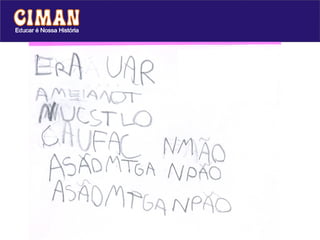 CIMAN
Educar é Nossa História
ERA UAR
AMEIANOT
NUCSTLO
CAUFAC NMÃO
ASÃOMTGA NPÃO
ASÃOMTGANPÃO